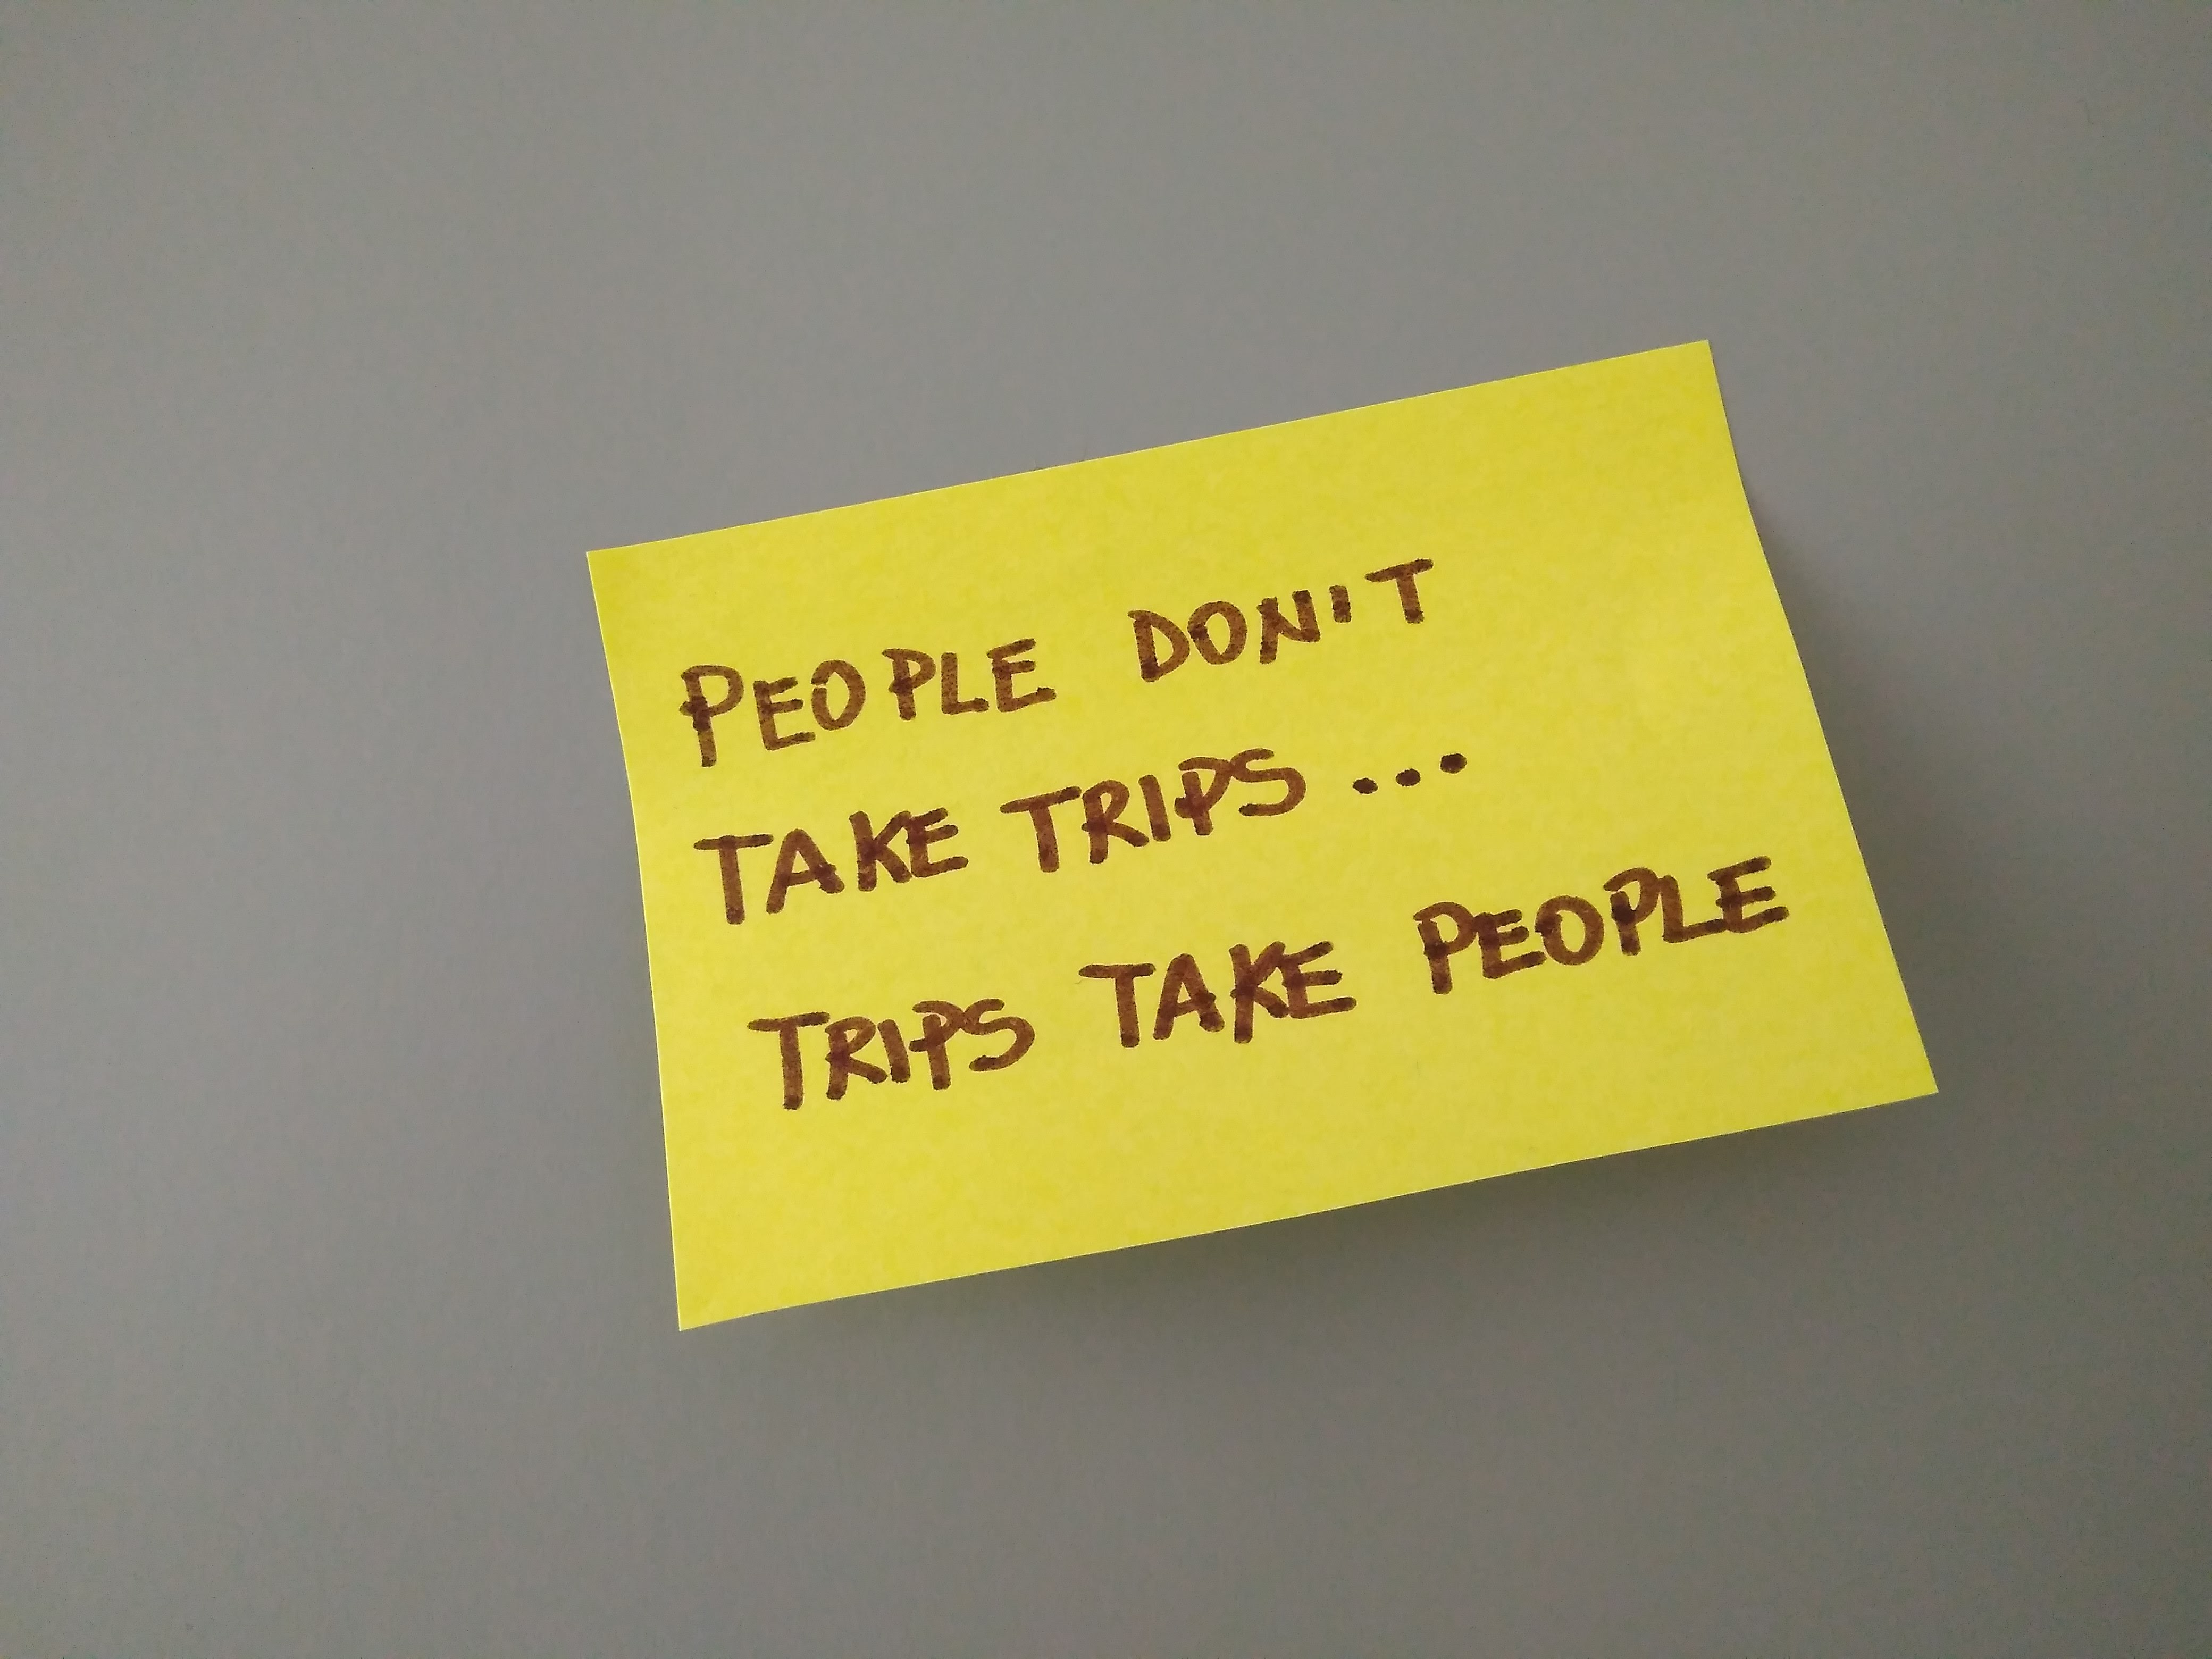 PEOPLE DON'T
TAKE TRIPS...
TRIPS TAKE PEOPLE